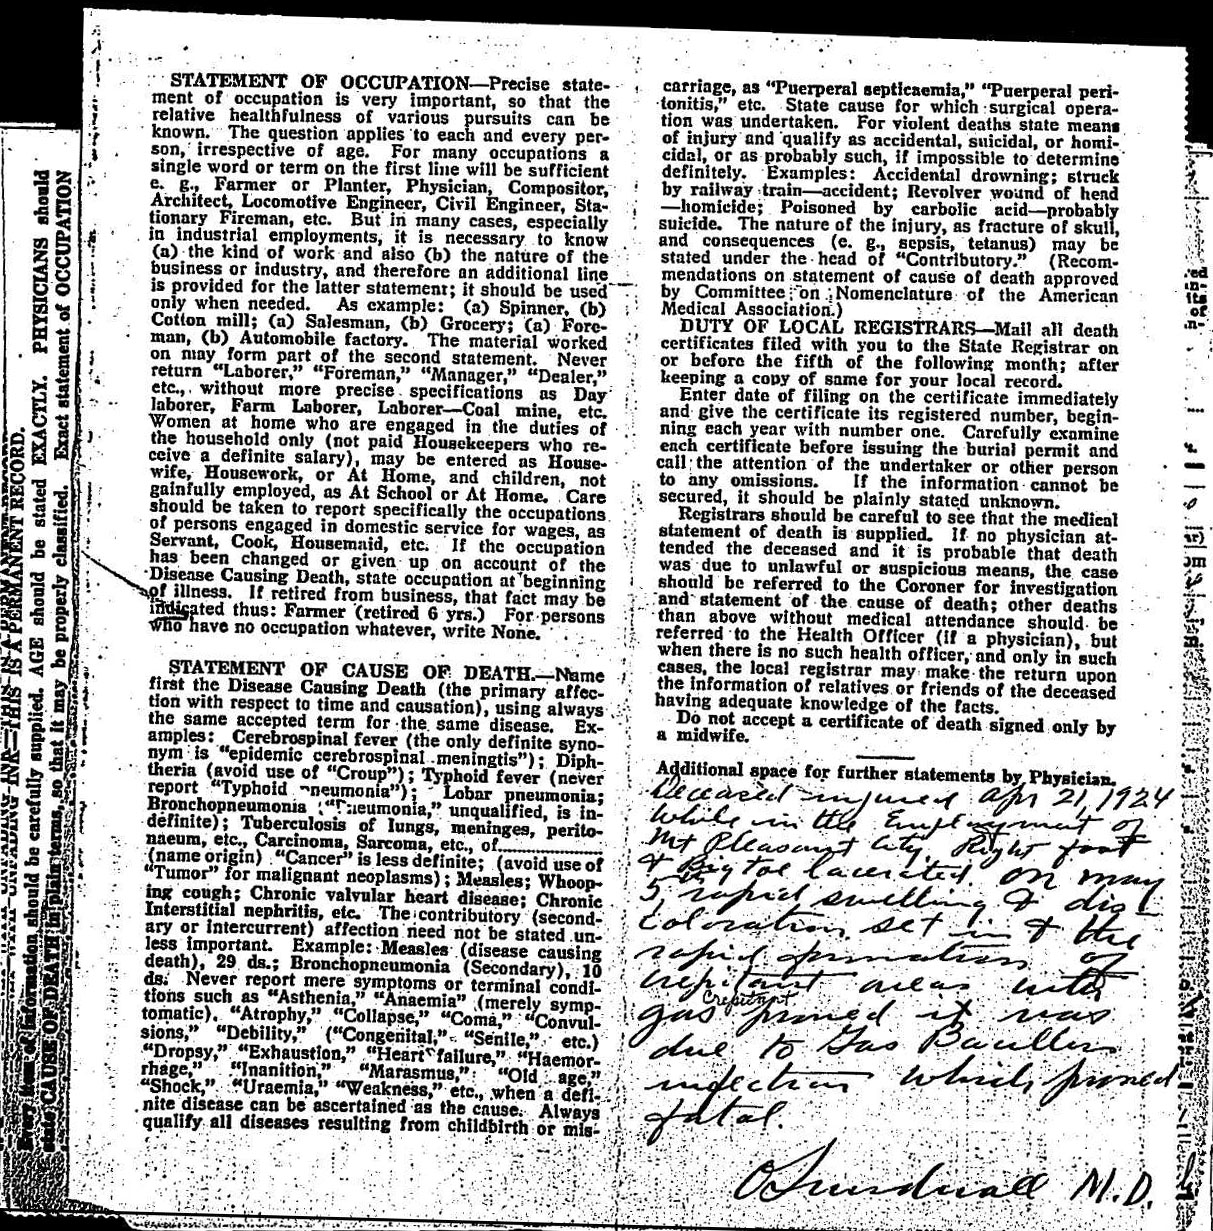 STATEMENT OF OCCUPATION—Precise state-
ment of occupation is very important, so that the
relative healthfulness of various pursuits can be
known. The question applies to each and every per-
son, irrespective of age. For many occupations a
single word or term on the first line will be sufficient
e. g., Farmer or Planter, Physician, Compositor,
Architect, Locomotive Engineer, Civil Engineer, Sta-
tionary Fireman, etc. But in many cases, especially
in industrial employments, it is necessary to know
(a) the kind of work and also (b) the nature of the
business or industry, and therefore an additional line
is provided for the latter statement; it should be used
only when needed. As example: (a) Spinner, (b)
Cotton mill; (a) Salesman, (b) Grocery; (a) Fore-
man, (b) Automobile factory. The material worked
on may form part of the second statement. Never
return "Laborer," "Foreman," "Manager," "Dealer,"
etc., without more precise specifications as Day
laborer, Farm Laborer, Laborer—Coal mine, etc.
Women at home who are engaged in the duties of
the household only (not paid Housekeepers who re-
ceive a definite salary), may be entered as House-
wife, Housework, or At Home, and children, not
gainfully employed, as At School or At Home. Care
should be taken to report specifically the occupations
of persons engaged in domestic service for wages, as
Servant, Cook, Housemaid, etc. If the occupation
has been changed or given up on account of the
Disease Causing Death, state occupation at beginning
of illness. If retired from business, that fact may be
indicated thus: Farmer (retired 6 yrs.) For persons
who have no occupation whatever, write None.
STATEMENT OF CAUSE OF DEATH.—Name
first the Disease Causing Death (the primary affec-
tion with respect to time and causation), using always
the same accepted term for the same disease. Ex-
amples: Cerebrospinal fever (the only definite syno-
nym is "epidemic cerebrospinal meningtis"); Diph-
theria (avoid use of "Croup"); Typhoid fever (never
report "Typhoid pneumonia"); Lobar pneumonia;
Bronchopneumonia ("Pneumonia," unqualified, is in-
definite); Tuberculosis of lungs, meninges, perito-
naeum, etc., Carcinoma, Sarcoma, etc., of
(name origin) "Cancer" is less definite; (avoid use of
"Tumor" for malignant neoplasms); Measles; Whoop-
ing cough; Chronic valvular heart disease; Chronic
Interstitial nephritis, etc. The contributory (second-
ary or intercurrent) affection need not be stated un-
less important. Example: Measles (disease causing
death), 29 ds.; Bronchopneumonia (Secondary), 10
ds. Never report mere symptoms or terminal condi-
tions such as "Asthenia," "Anaemia" (merely symp-
tomatic), "Atrophy," "Collapse," "Coma," "Convul-
sions," "Debility," ("Congenital," "Senile," etc.)
"Dropsy," "Exhaustion," "Heart failure," "Haemor-
rhage," "Inanition," "Marasmus," "Old age,"
"Shock," "Uraemia," "Weakness," etc., when a defi-
nite disease can be ascertained as the cause. Always
qualify all diseases resulting from childbirth or mis-
carriage, as "Puerperal septicaemia," "Puerperal peri-
tonitis," etc. State cause for which surgical opera-
tion was undertaken. For violent deaths state means
of injury and qualify as accidental, suicidal, or homi-
cidal, or as probably such, if impossible to determine
definitely. Examples: Accidental drowning; struck
by railway train—accident; Revolver wound of head
—homicide; Poisoned by carbolic acid—probably
suicide. The nature of the injury, as fracture of skull,
and consequences (e. g., sepsis, tetanus) may be
stated under the head of "Contributory." (Recom-
mendations on statement of cause of death approved
by Committee on Nomenclature of the American
Medical Association.)
DUTY OF LOCAL REGISTRARS—Mail all death
certificates filed with you to the State Registrar on
or before the fifth of the following month; after
keeping a copy of same for your local record.
Enter date of filing on the certificate immediately
and give the certificate its registered number, begin-
ning each year with number one. Carefully examine
each certificate before issuing the burial permit and
call the attention of the undertaker or other person
to any omissions. If the information cannot be
secured, it should be plainly stated unknown.
Registrars should be careful to see that the medical
statement of death is supplied. If no physician at-
tended the deceased and it is probable that death
was due to unlawful or suspicious means, the case
should be referred to the Coroner for investigation
and statement of the cause of death; other deaths
than above without medical attendance should be
referred to the Health Officer (if a physician), but
when there is no such health officer, and only in such
cases, the local registrar may make the return upon
the information of relatives or friends of the deceased
having adequate knowledge of the facts.
Do not accept a certificate of death signed only by
a midwife.
Additional space for further statements by Physician.
Deceased injured Apr 21, 1924
while in the Employment of
Mt Pleasant City Right foot
& Big toe lacerated. On may
5, rapid swelling & dis-
coloration set in & the
rapid formation of
crepitant areas with
Crepitant
gas proved it was
due to Gas Bacillus
infection which proved
fatal.
M.D.
Every item of information should be carefully supplied. AGE should be stated EXACTLY. PHYSICIANS should
state CAUSE OF DEATH in plain terms, so that it may be properly classified. Exact statement of OCCUPATION
INK—THIS IS A PERMANENT RECORD.